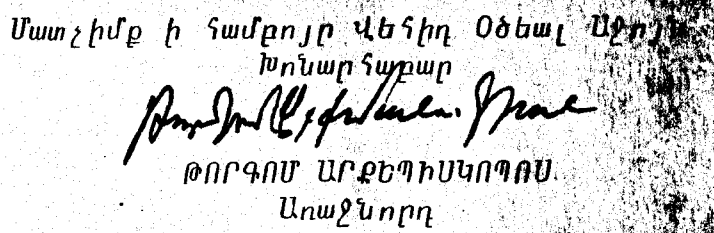 Մատչիմք ի համբոյր Վեհիդ Օծեալ Աջոյն
Խոնարհաբար
ԹՈՐԳՈՄ ԱՐՔԵՊԻՍԿՈՊՈՍ
Առաջնորդ